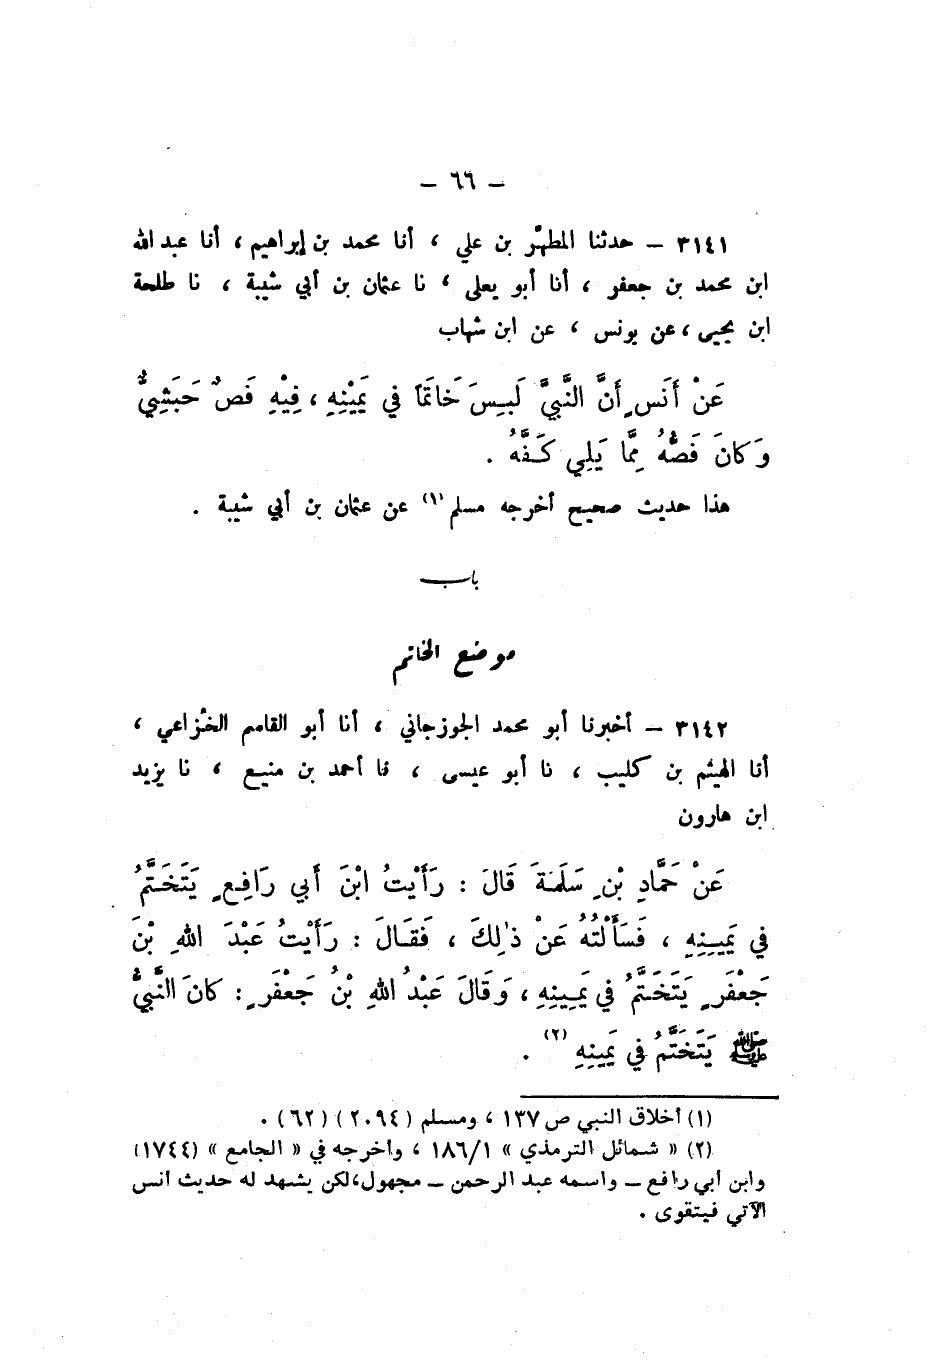 – ٦٦ –
٣١٤١ – حدثنا المطهَّر بن علي ، أنا محمد بن إبراهيم ، أنا عبد الله
ابن محمد بن جعفر ، أنا أبو يعلى ، نا عثمان بن أبي شيبة ، نا طلحة
ابن يحيى ، عن يونس ، عن ابن شهاب
عَنْ أَنَسٍ أَنَّ النَّبيَّ لَبِسَ خَاتَمًا في يَمِيْنِهِ ، فِيْهِ فَصٌ حَبَشِيٌّ
وَكَانَ فَصُّهُ مِمَّا يَلِي كَفَّهُ .
هذا حديث صحيح أخرجه مسلم (١) عن عثمان بن أبي شيبة .
باب
موضع الخاتم
٣١٤٢ – أخبرنا أبو محمد الجوزجاني ، أنا أبو القاسم الخُزاعي ،
أنا الهيثم بن كليب ، نا أبو عيسى ، نا أحمد بن منيع ، نا يزيد
ابن هارون
عَنْ حَمَّادِ بْنِ سَلَمَةَ قَالَ : رَأَيْتُ ابْنَ أَبي رَافِعٍ يَتَخَتَّمُ
في يَمِينِهِ ، فَسَأَلْتُهُ عَنْ ذٰلِكَ ، فَقَالَ : رَأَيْتُ عَبْدَ اللهِ بْنَ
جَعْفَرٍ يَتَخَتَّمُ في يَمِينِهِ ، وَقَالَ عَبْدُ اللهِ بْنُ جَعْفَرٍ : كَانَ النَّبيُّ
ﷺ يَتَخَتَّمُ في يَمِينِهِ (٢) .
(١) أخلاق النبي ص ١٣٧ ، ومسلم (٢٠٩٤) (٦٢) .
(٢) « شمائل الترمذي » ١٨٦/١ ، وأخرجه في « الجامع » (١٧٤٤)
وابن أبي رافع – واسمه عبد الرحمن – مجهول،لكن يشهد له حديث أنس
الآتي فيتقوى .